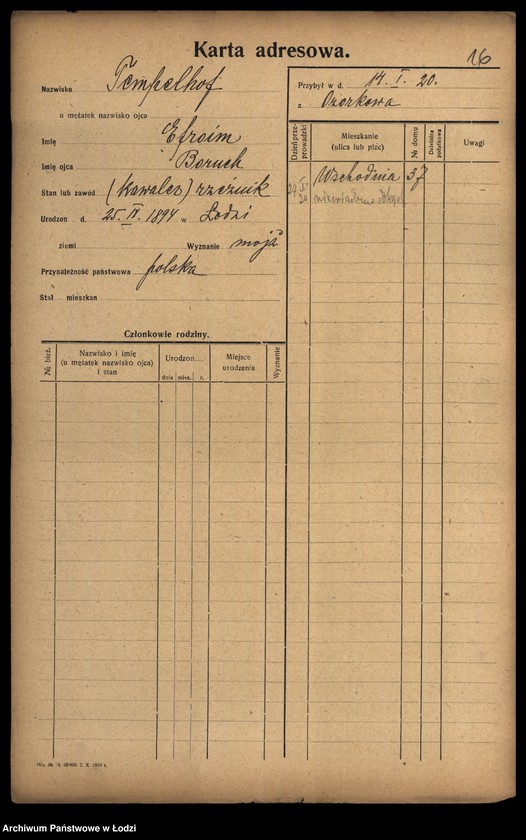 Karta adresowa.
16
Nazwisko Tempelhof
u mężatek nazwisko ojca
Imię Efroim
Imię ojca Boruch
Stan lub zawód (Kawaler) rzeźnik
Urodzon d. 25. IV. 1894 w Łodzi
ziemi Wyznanie mojż
Przynależność państwowa polska
Stał mieszkan
Przybył w d. 14. I. 20.
z Ozorkowa
Dzień przeprowadzki
Mieszkanie
(ulica lub plac)
№ domu
Dzielnica podatkowa
Uwagi
Wschodnia 37
niewiadomo
Członkowie rodziny.
№ bież.
Nazwisko i imię
(u mężatek nazwisko ojca)
i stan
Urodzon
dnia mies. r.
Miejsce
urodzenia
Wyznanie
Archiwum Państwowe w Łodzi